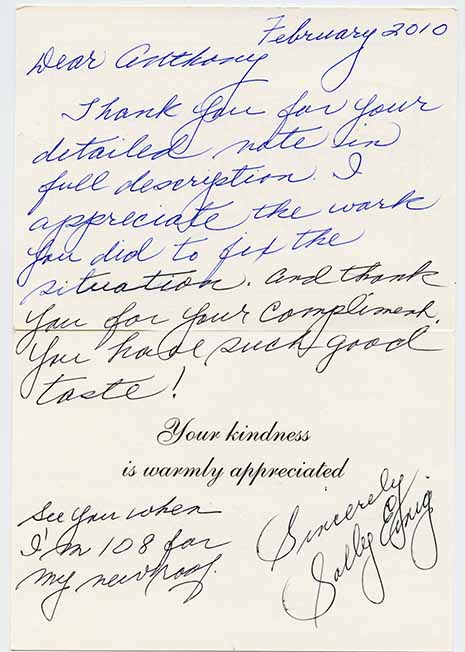 February 2010
Dear Anthony
Thank you for your
detailed note in
full description. I
appreciate the work
you did to fix the
situation. And thank
you for your compliment.
You have such good
taste!
Your kindness
is warmly appreciated
See you when
I'm 108 for
my new roof.
Sincerely
Salley